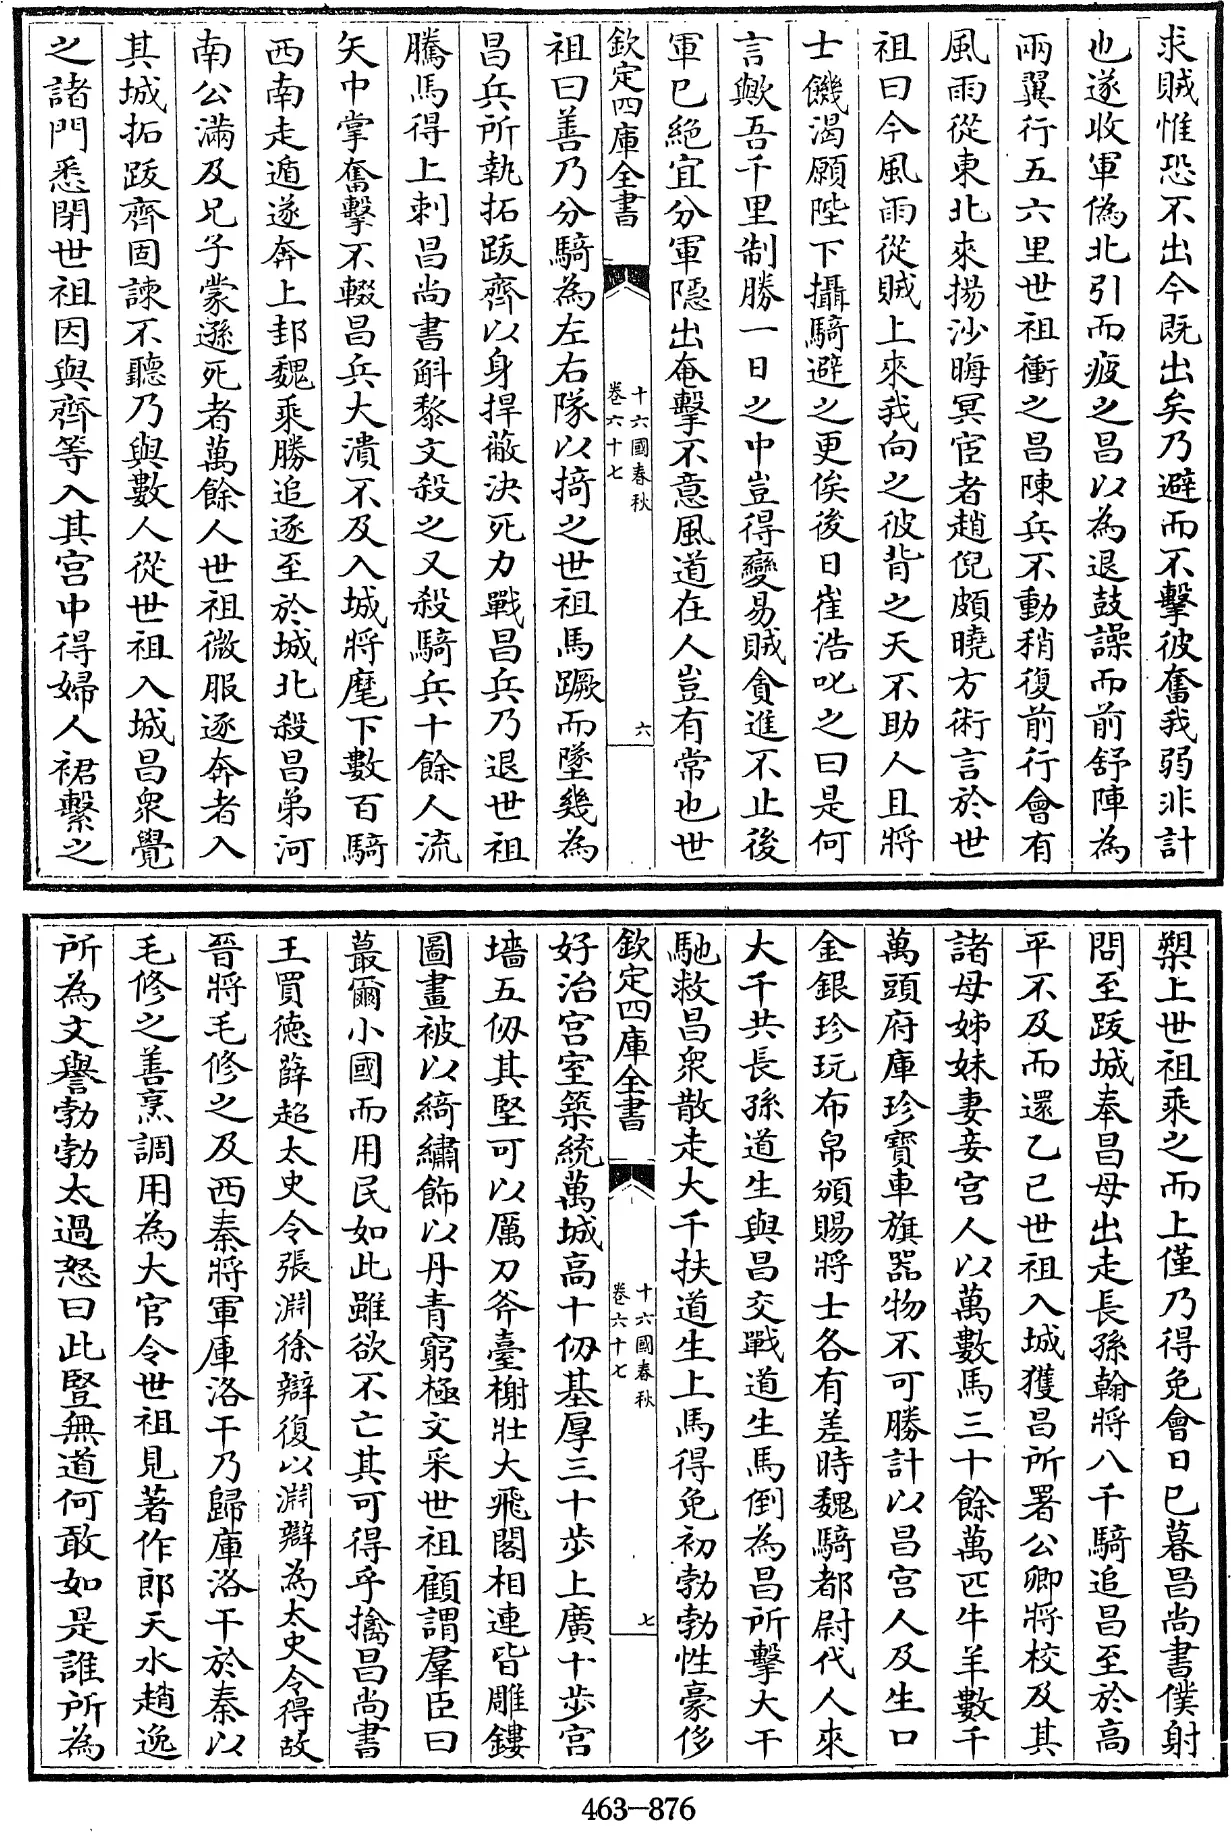 求賊惟恐不出今既出矣乃避而不擊彼奮我弱非計
也遂收軍偽北引而疲之昌以為退鼓譟而前舒陣為
兩翼行五六里世祖衝之昌陳兵不動稍復前行會有
風雨從東北來揚沙晦冥宦者趙倪頗曉方術言於世
祖曰今風雨從賊上來我向之彼背之天不助人且將
士饑渴願陛下攝騎避之更俟後日崔浩叱之曰是何
言歟吾千里制勝一日之中豈得變易賊貪進不止後
軍已絕宜分軍隱出奄擊不意風道在人豈有常也世
欽定四庫全書
十六國春秋
卷六十七
六
祖曰善乃分騎為左右隊以掎之世祖馬蹶而墜幾為
昌兵所執拓跋齊以身捍蔽決死力戰昌兵乃退世祖
騰馬得上刺昌尚書斛黎文殺之又殺騎兵十餘人流
矢中掌奮擊不輟昌兵大潰不及入城將麾下數百騎
西南走遁遂奔上邽魏乘勝追逐至於城北殺昌弟河
南公滿及兄子蒙遜死者萬餘人世祖微服逐奔者入
其城拓跋齊固諫不聽乃與數人從世祖入城昌衆覺
之諸門悉閉世祖因與齊等入其宮中得婦人裙繫之
槊上世祖乘之而上僅乃得免會日已暮昌尚書僕射
問至跋城奉昌母出走長孫翰將八千騎追昌至於高
平不及而還乙巳世祖入城獲昌所署公卿將校及其
諸母姊妹妻妾宮人以萬數馬三十餘萬匹牛羊數千
萬頭府庫珍寶車旗器物不可勝計以昌宮人及生口
金銀珍玩布帛頒賜將士各有差時魏騎都尉代人來
大千共長孫道生與昌交戰道生馬倒為昌所擊大千
馳救昌衆散走大千扶道生上馬得免初勃勃性豪侈
欽定四庫全書
十六國春秋
卷六十七
七
好治宮室築統萬城高十仞基厚三十步上廣十步宮
墻五仞其堅可以厲刀斧臺榭壯大飛閣相連皆雕鏤
圖畫被以綺繡飾以丹青窮極文采世祖顧謂羣臣曰
蕞爾小國而用民如此雖欲不亡其可得乎擒昌尚書
王買德薛超太史令張淵徐辯復以淵辯為太史令得故
晉將毛修之及西秦將軍厙洛干乃歸庫洛干於秦以
毛修之善烹調用為大官令世祖見著作郎天水趙逸
所為文譽勃勃太過怒曰此豎無道何敢如是誰所為
463-876